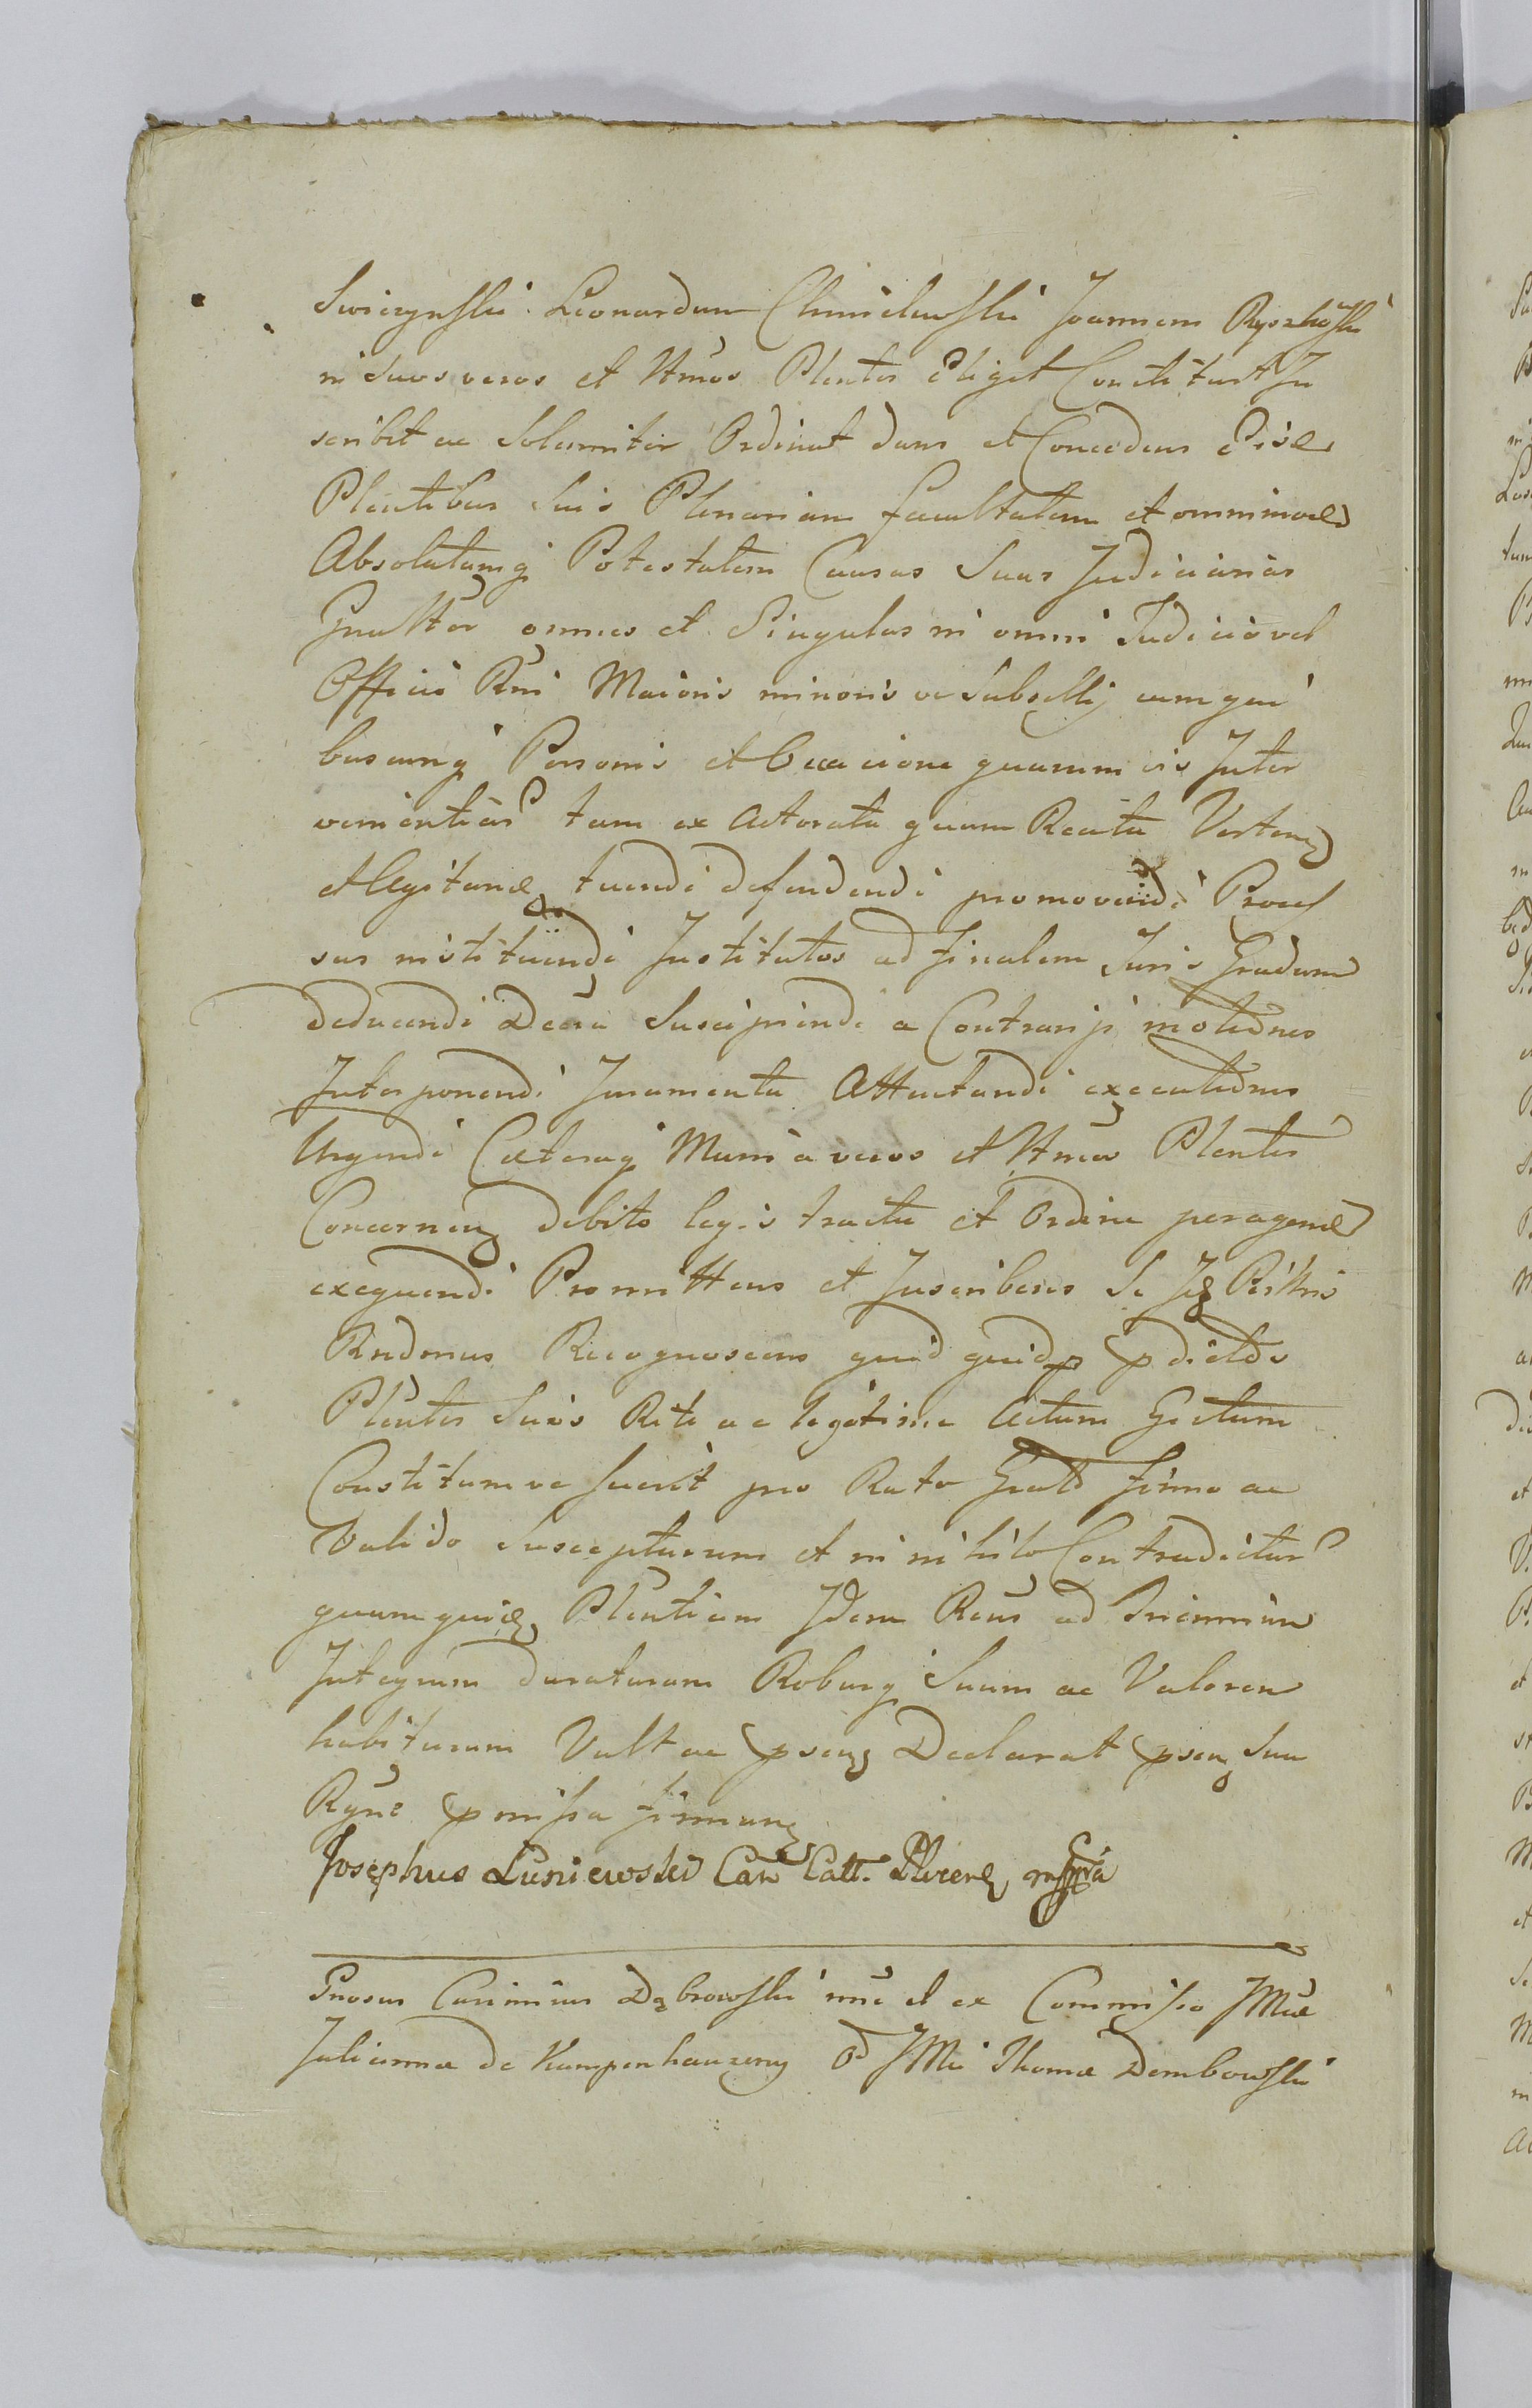 Swiezynski Leonardum Chmielewski Joannem Ryszkoski
in Suos veros et lttmos Plentes Eligit Constituit In
scribit ac Solemniter Ordinat dans et Concedens Eisd
Plentibus Suis Plenariam facultatem et omnimod
Absolutamq Potestatem Causas Suas Judiciarias
gnaliter omnes et Singulas in omni Judicio vel
Officio Rni Maioris minoris ve Subsellij cum qui
buscunq Personis et Occacione quarumvis Inter
venientiar tam ex Actoratu quam Reatu Verten
et Agitand tuendi defendendi promovendi Proces
sus instituendi Institutos ad finalem Juris Gradum
deducendi Decra Suscipiendi a Contrarijs motiones
Interponendi Juramenta Attentandi executiones
Urgendi Caeteraq Munia veros et lttmos Plentes
Concernen debito legis tractu et Ordine peragend
exequendi Promittens et Inscribens Se
Recognoscens quod quidq pdictos
Plentes Suos Rite ac legitime Actum Gestum
Constitumve fuerit pro Rato Grato firmo ac
Valido Suscepturum et in nihilo Contradictur
quamquid Plentiam Idem Rcns ad Triennium
Integrum duraturam Roburq Suum ac Valorem
habituram Vult ac psen Declarat psen Sua
Rgne pmissa firman
Josephus Łuniewski Can Catt. Livon mppria
Gnosus Casimirus Dąbrowski nne et ex Commisso JMae
Julianna de Kampenhauzeny Od JMi Thomae Dembowski